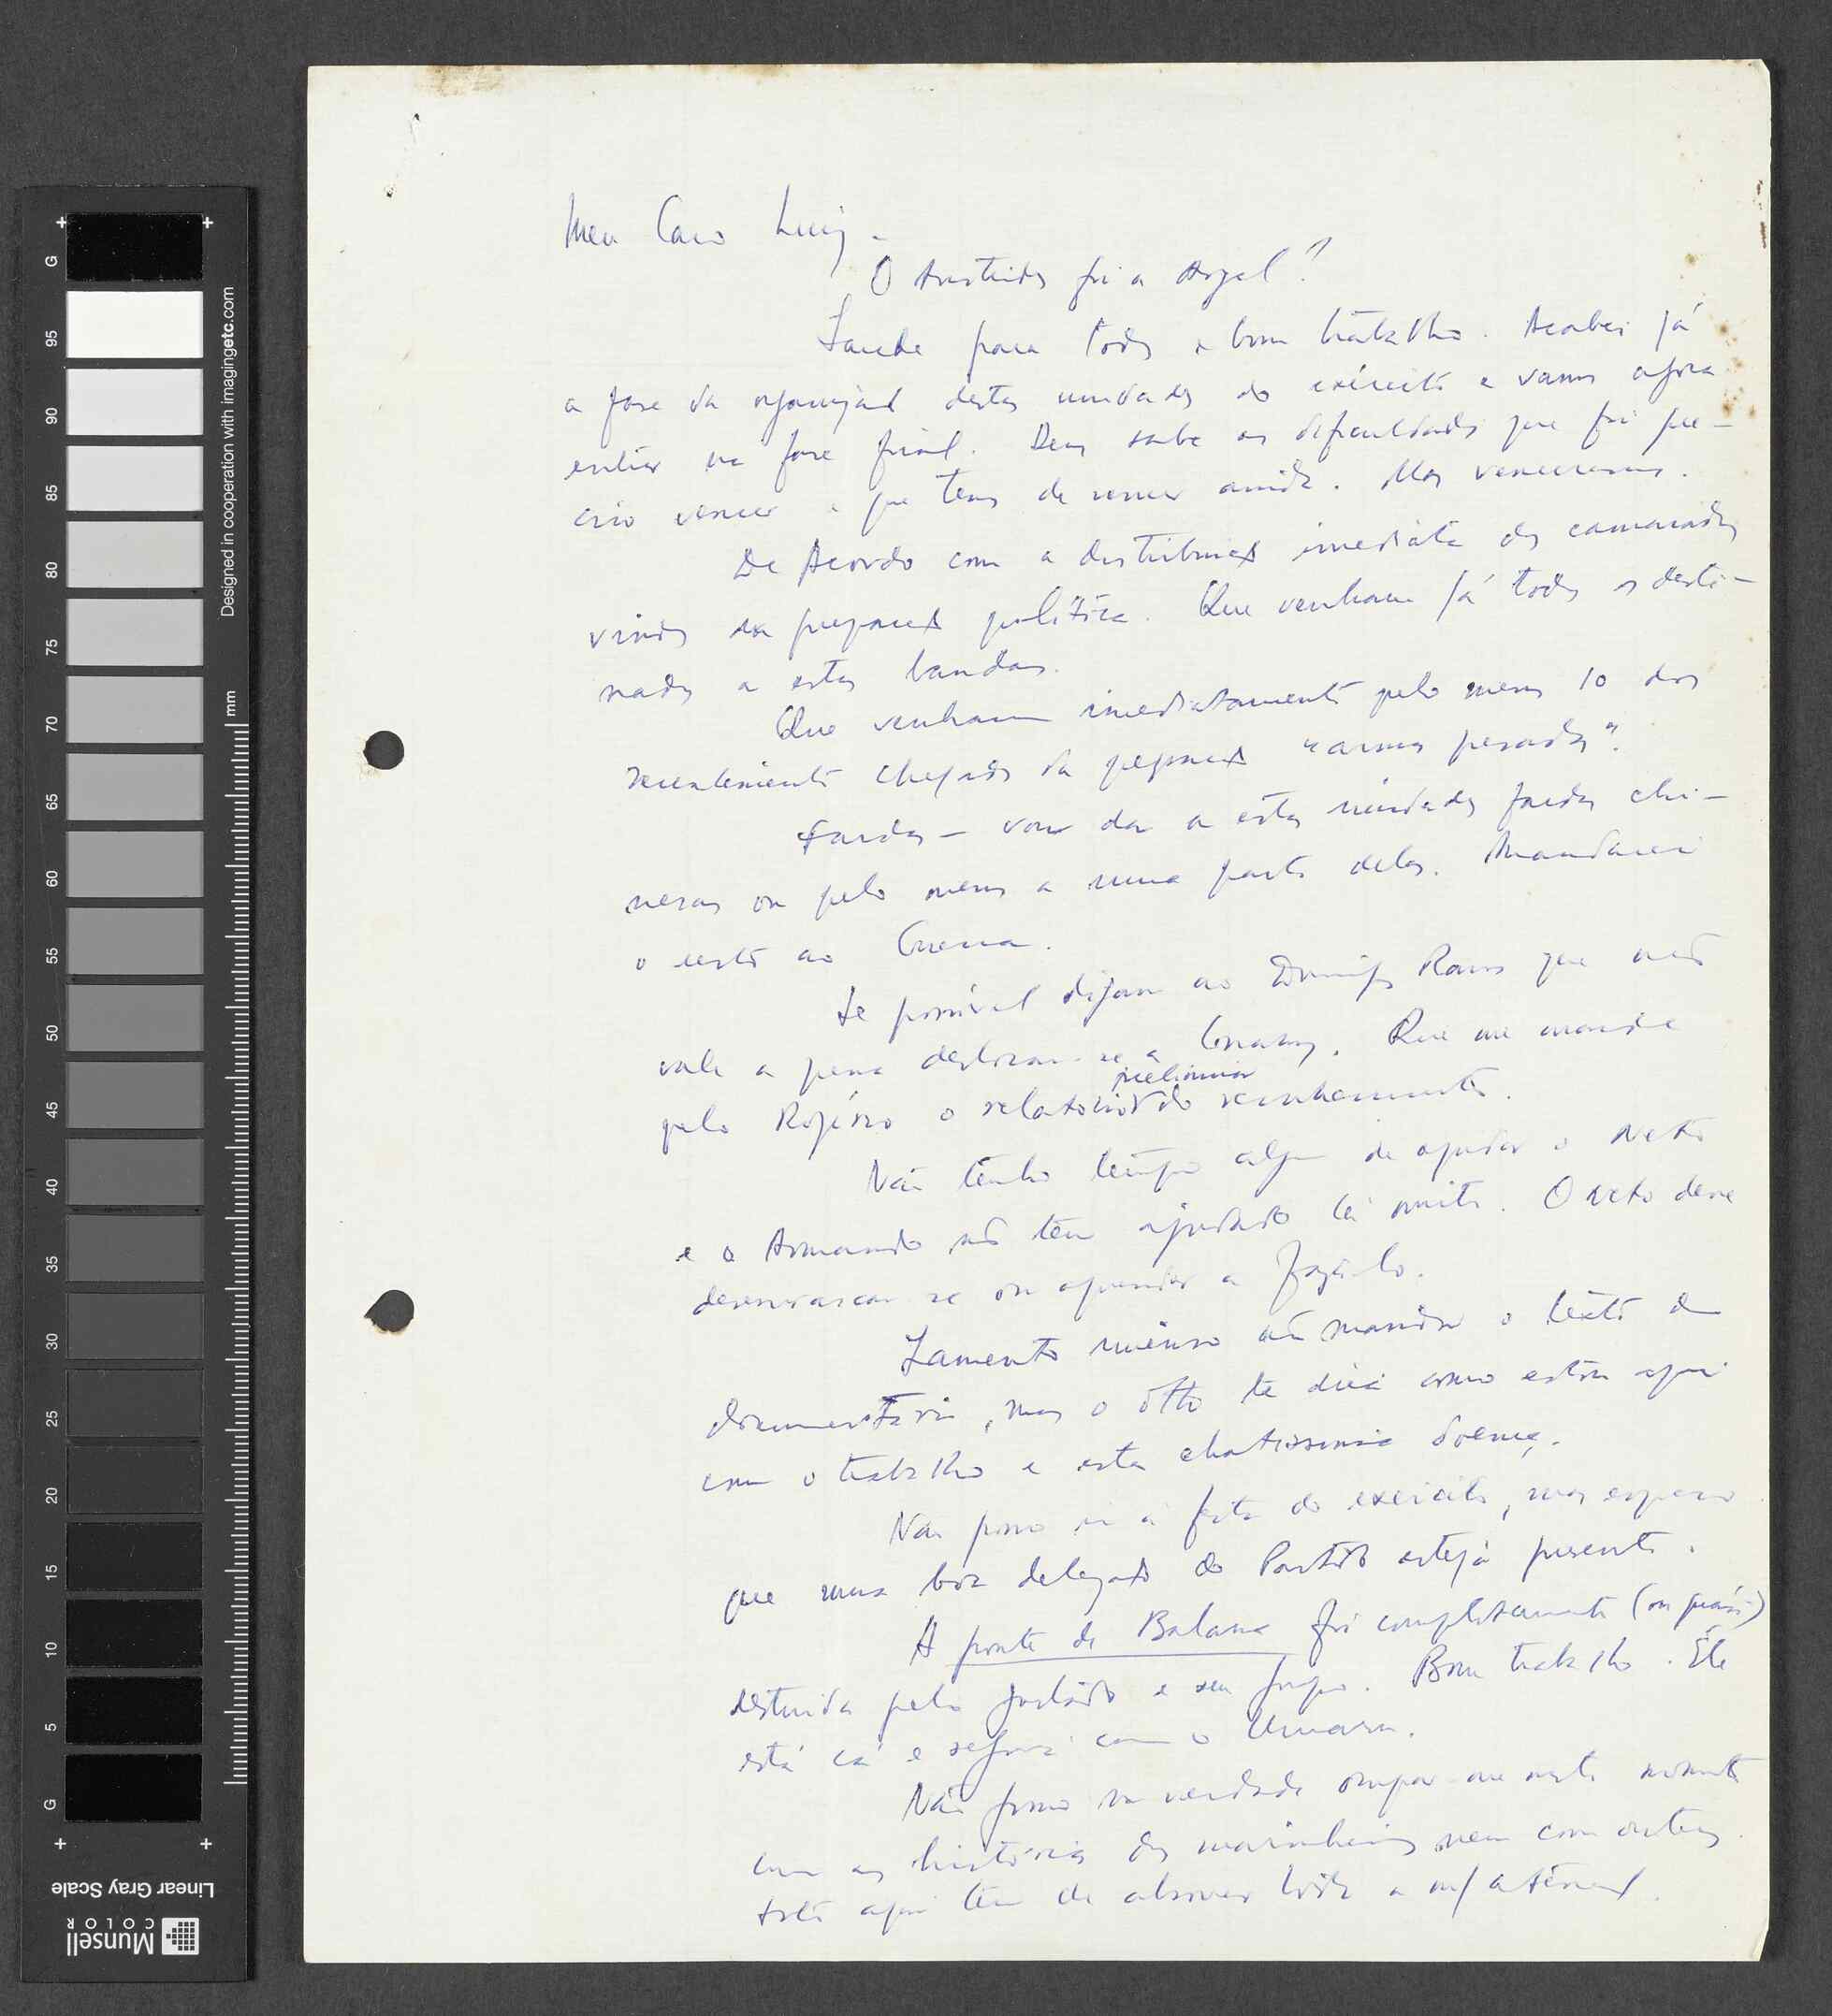 Meu Caro Luiz -
O Aristides foi a Argel?
Saude para todos e bom trabalho. Acabei já
a fase da organização destas unidades do exército e vamos agora
entrar na fase final. Deus sabe as dificuldades que foi pre-
ciso vencer e que temos de vencer ainda. Mas venceremos.
De Acordo com a distribuição imediata dos camaradas
vindos da preparação política. Que venham já todos os desti-
nados a estas bandas.
Que venham imediatamente pelo menos 10 dos
recentemente chegados da preparação "armas pesadas".
Fardas - vou dar a estas unidades fardas chi-
nesas ou pelo menos a uma parte delas. Mandarei
o resto ao
Se possível digam ao Domingos Ramos que não
vale a pena deslocar-se a Conakry. Que me mande
pelo Rogério o relatório preliminar do reconhecimento.
Não tenho tempo algum de ajudar o Neto
e o Armando não tem ajudado lá muito. O Neto deve
desenrascar-se ou aprender a fazê-lo.
Lamento imenso não mandar o texto do
documentário, mas o Otto te dirá como estou aqui
com o trabalho e esta chatíssima doença.
Não posso ir à festa do exército, mas espero
que uma boa delegação do Partido esteja presente.
A ponte de Balana foi completamente (ou quási)
destruida pelo e seu grupo. Bom trabalho. Êle
está cá e seguirá com o Umaru.
Não posso na verdade ocupar-me neste momento
com as histórias dos marinheiros nem com outras.
Isto aqui tem de absorver toda a m/ atenção.
Designed in cooperation with imagingetc.com
mm
G
95
90
85
80
75
70
65
60
55
50
45
40
35
30
25
20
15
10
5
G
Linear Gray Scale
Munsell
COLOR